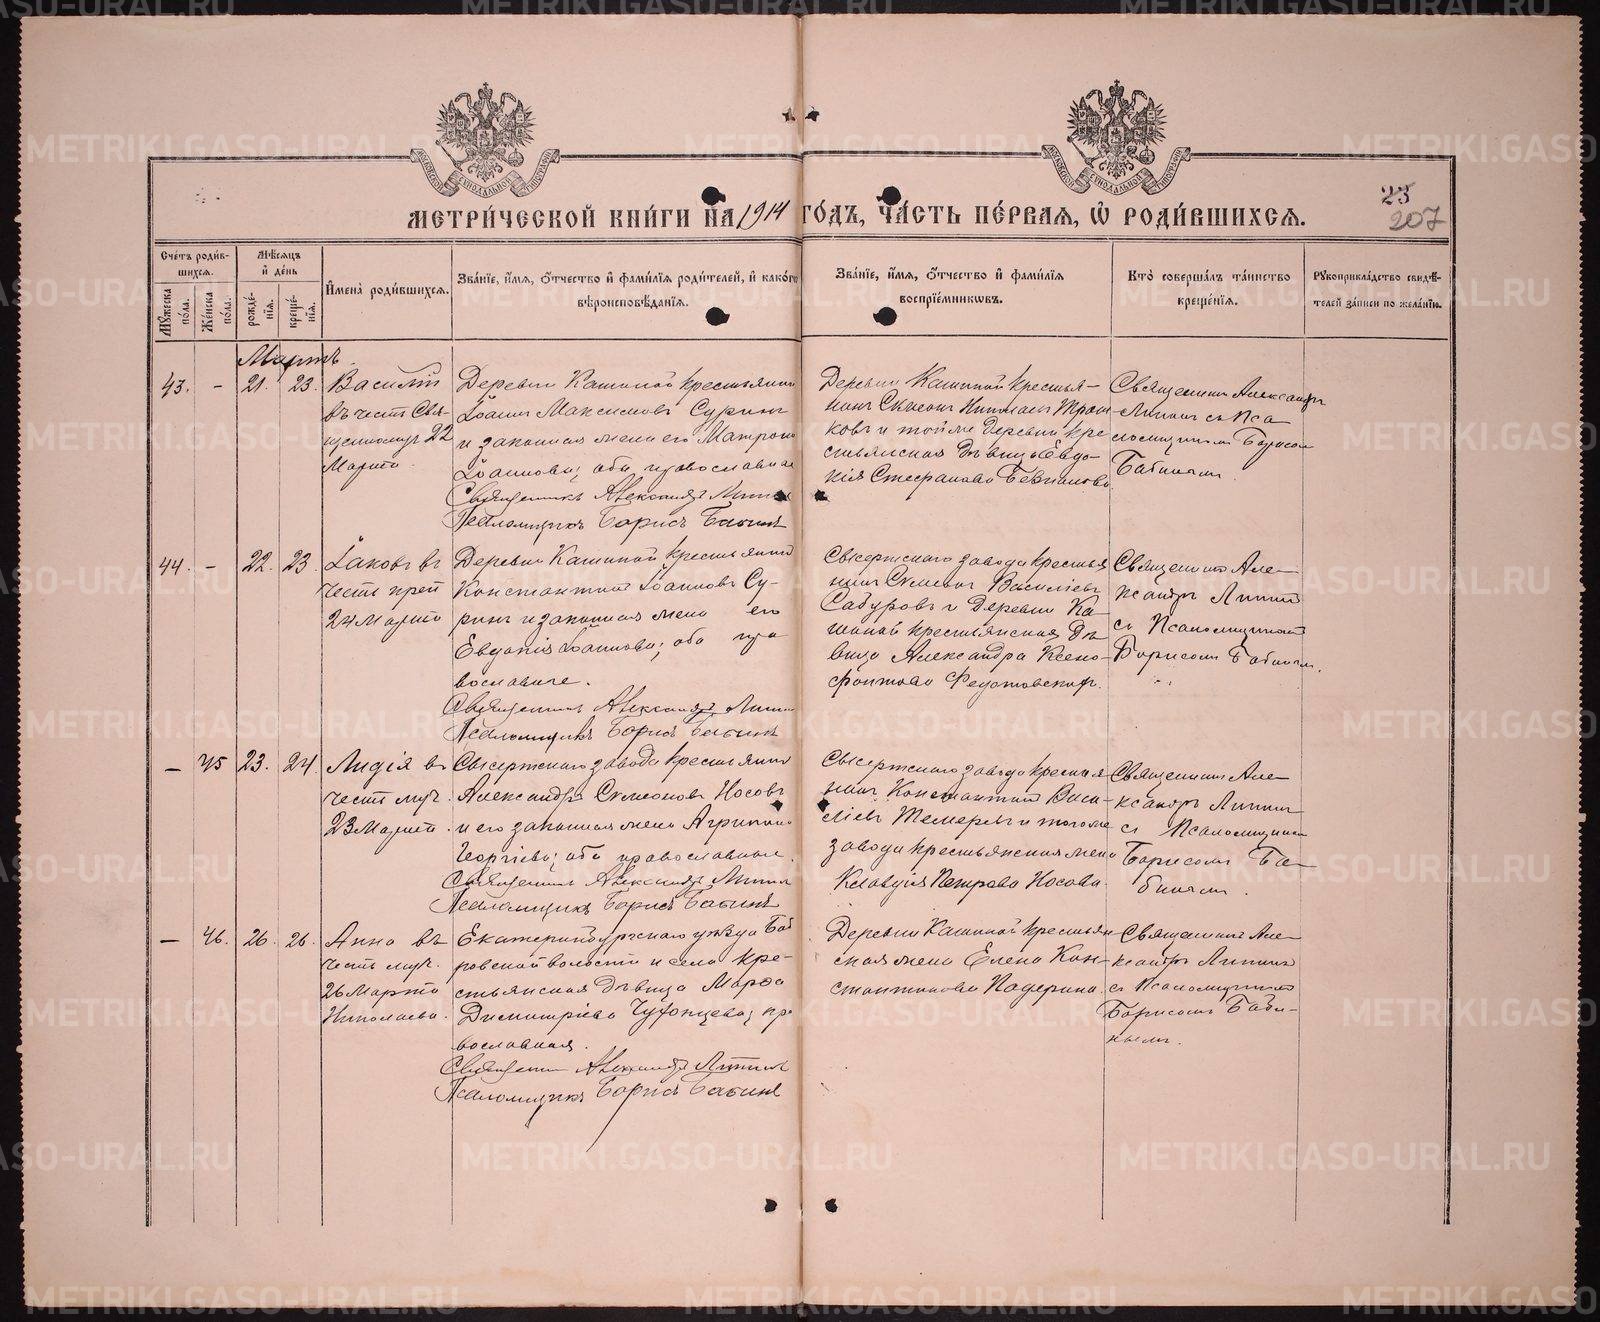 МЕТРИ́ЧЕСКОЙ КНИ́ГИ НА 1914 ГО́ДЪ, ЧА́СТЬ ПЕ́РВАЯ, Ѡ РОДИ́ВШИХСЯ.
23
207
Сче́тъ роди́в-
шихся.
Мꙋ́жеска по́ла.
Же́нска по́ла.
Мѣ́сяцъ
и҆ де́нь
рожде́-
нїѧ.
креще́-
нїѧ.
И҆мена̀ роди́вшихся.
Зва́нїе, и҆́мѧ, ѻ҆́тчество и҆ фами́лїѧ роди́телей, и҆ како́гѡ
вѣроисповѣ́данїѧ.
Зва́нїе, и҆́мѧ, ѻ҆́тчество и҆ фами́лїѧ
воспрїе́мниковъ.
Кто̀ соверша́лъ та́инство
креще́нїѧ.
Рꙋкоприкла́дство свидѣ́-
телей за́писи по жела́нїю.
Мартъ.
43. - 21. 23.
Василій
въ честь Свя-
щенномуч 22
Марта.
Деревни Кашиной крестьянинъ
Іоаннъ Максимовъ Суринъ
и законная жена его Матрона
Іоаннова; оба православные
Священникъ Александръ
Псаломщикъ Борисъ Бабинъ
Деревни Кашиной крестья-
нинъ
ковъ и той же деревни кре
стьянская дѣвица Евдо-
кія Стефанова
Священникъ Александръ
съ Пса
ломщикомъ Борисом
Бабинымъ.
44. - 22. 23.
Іаковъ въ
честь преп
24 Марта
Деревни Кашиной крестьянинъ
Константинъ Іоанновъ Су-
ринъ и законная жена его
Евдокія Іоаннова; оба пра
вославные.
Священникъ Александръ
Псаломщикъ Борисъ Бабинъ
Сысертскаго завода крестья
нинъ Симеонъ Василіевъ
Сабуровъ и деревни Ка-
шиной крестьянская дѣ-
вица Александра Ксено-
фонтова
Священникъ Але-
ксандръ
съ Псаломщикомъ
Борисомъ Бабинымъ.
- 45 23. 24
Лидія въ
честь муч.
23 Марта.
Сысертскаго завода крестьянинъ
Александръ Симеоновъ Носовъ
и его законная жена Агриппина
Георгіева; оба православные.
Священникъ Александръ
Псаломщикъ Борисъ Бабинъ
Сысертскаго завода крестья
нинъ Константинъ Васи-
ліевъ и того же
завода крестьянская жена
Клавдія Петрова Носова.
Священникъ Але-
ксандръ
съ Псаломщикомъ
Борисомъ Ба-
бинымъ.
- 46. 26. 26.
Анна въ
честь муч.
26 Марта
Екатеринбургскаго уѣзда
ровской волости и села кре-
стьянская дѣвица Марѳа
Димитріева пра
вославная.
Священникъ Александръ
Псаломщикъ Борисъ Бабинъ
Деревни Кашиной крестьян
ская жена Елена Кон-
стантинова Кадерина.
Священникъ Але-
ксандръ
съ Псаломщикомъ
Борисомъ Баби-
нымъ.
METRIKI.GASO-URAL.RU